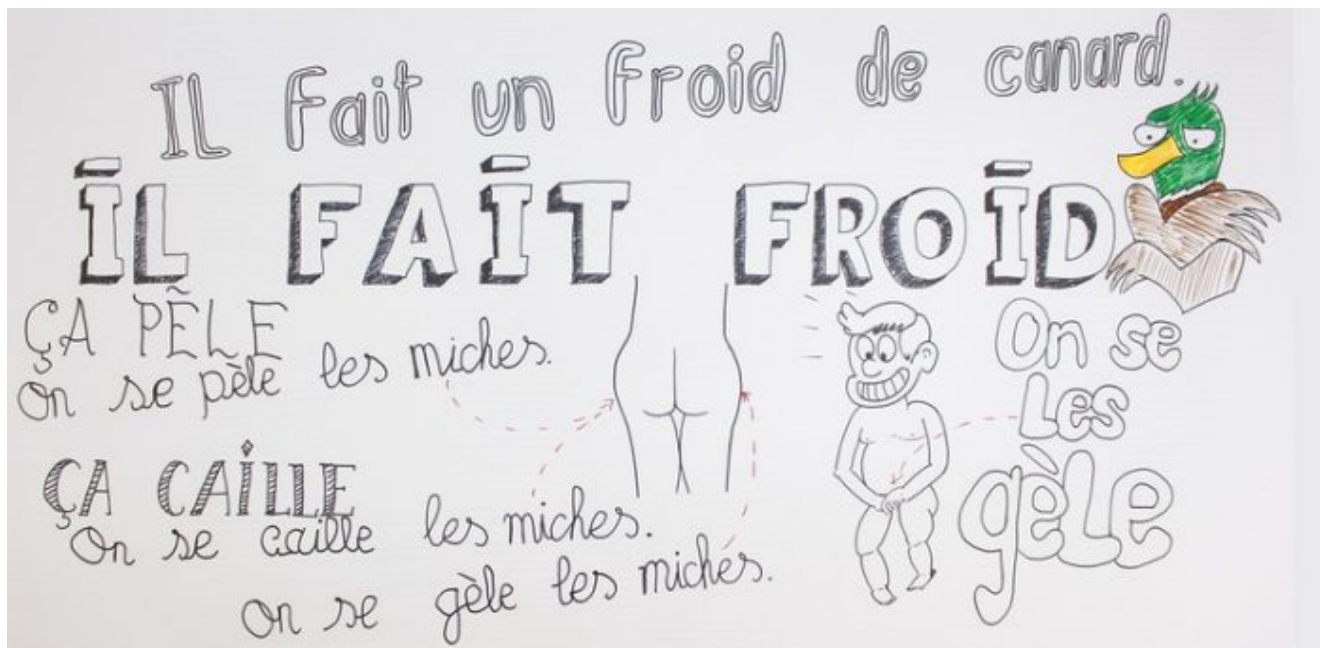 IL Fait un froid de canard.
IL FAIT FROID
ÇA PÈLE
On se pèle les miches.
ÇA CAILLE
On se caille les miches.
on se gèle les miches.
On se
Les
gèle